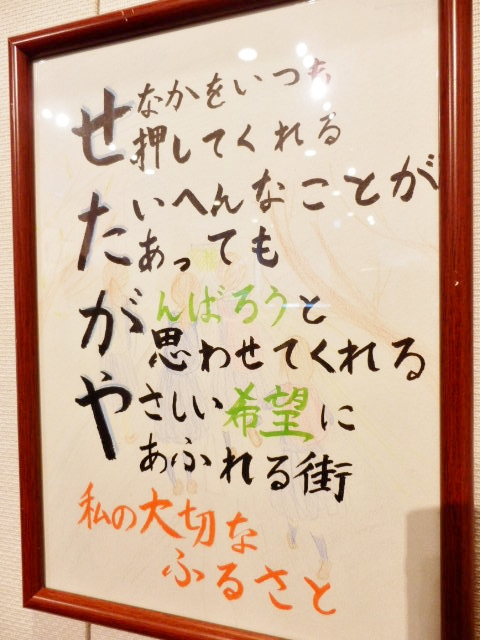 せなかをいつも
押してくれる
たいへんなことが
あっても
がんばろうと
思わせてくれる
やさしい希望に
あふれる街
私の大切な
ふるさと